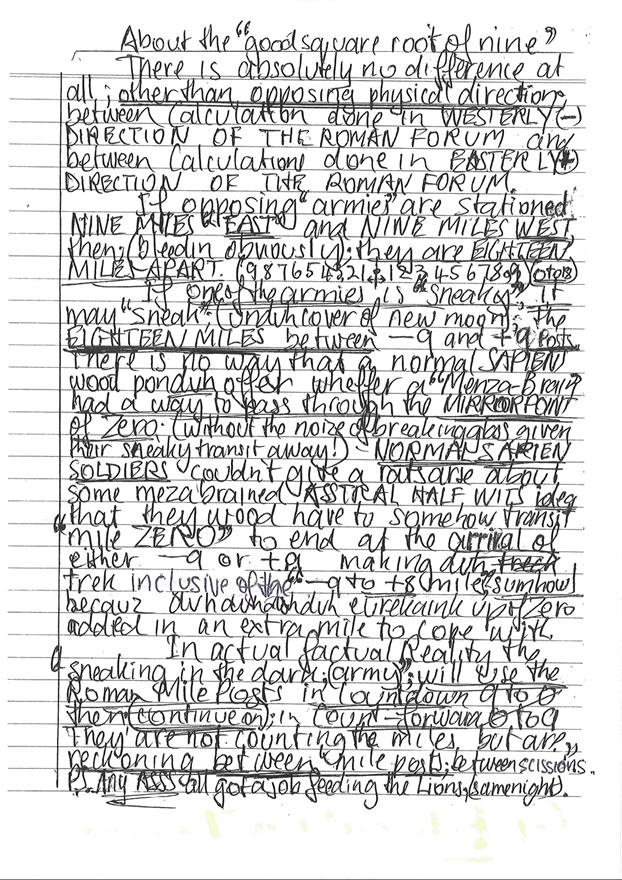 About the "good square root of nine"
There is absolutely no difference at
all; other than opposing physical direction,
between Calculation done in WESTERLY (-)
DIRECTION OF THE ROMAN FORUM and
between Calculations done in EASTERLY (+)
DIRECTION OF THE ROMAN FORUM.
If opposing "armies" are stationed
NINE MILES "EAST" and NINE MILES WEST
then; (bleedin obviously); they are EIGHTEEN
MILES APART.
If one of the armies is "sneaky", it
may "sneak" (induh cover of new moon) the
EIGHTEEN MILES between -9 and +9 Posts.
There is no way that a normal SAPIEN
wood ponduh offer wheffer a "Menza-Brain"
had a way to pass through the MIRROR POINT
of Zero. (without the noize of breaking glass given
their sneaky transit away!) NORMAN SAPIEN
SOLDIERS couldn't give a ratsarse about
some meza brained ASSTICAL HALF WITS idea
that they wood have to somehow transit
"mile ZERO" to end at the arrival of
either -9 or +9 making duh
trek inclusive of the "-9 to +8 miles" sumhow!
becauz up of Zero
added in an extra mile to cope with.
In actual factual Reality the
"sneaking in the dark army", will use the
Roman Mile Posts in countdown 9 to 0
then (continue on); in count-forward 0 to 9
They are not counting the miles but are,
reckoning between "mile posts; between scissions".
P.S. Any ASSS all got a job feeding the Lions, (same night).